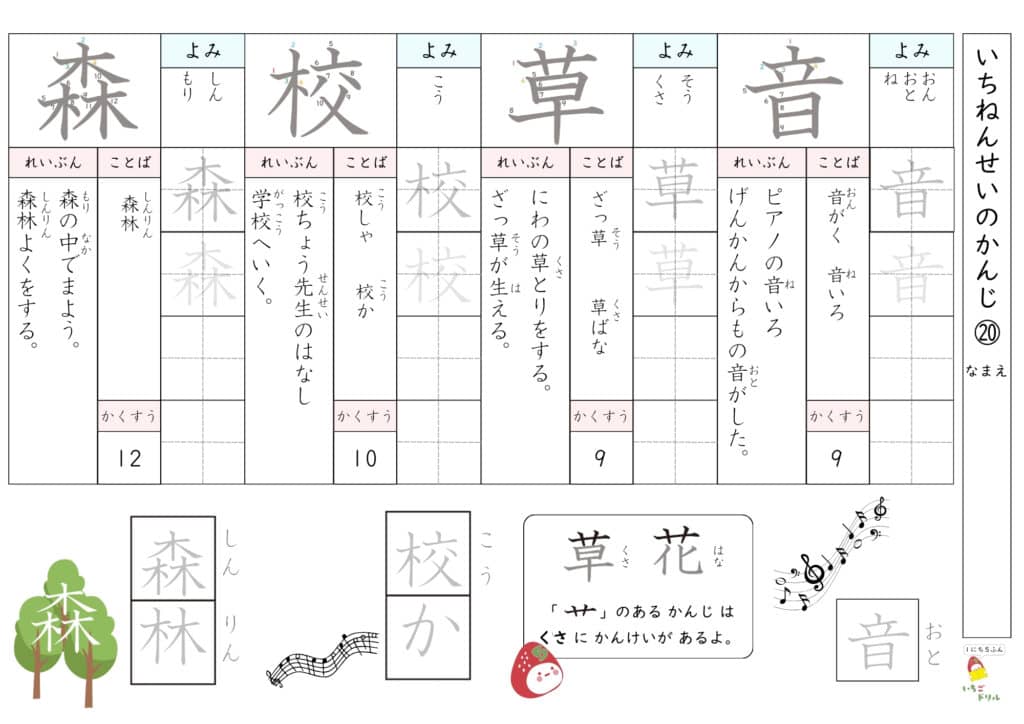 いちねんせいのかんじ⑳
なまえ
音
よみ
おん
おと
ね
音
音
ことば
音がく 音いろ
おん ね
かくすう
9
れいぶん
ピアノの音いろ
ね
げんかんからもの音がした。
おと
草
よみ
そう
くさ
草
草
ことば
ざっ草 草ばな
そう くさ
かくすう
9
れいぶん
にわの草とりをする。
くさ
ざっ草が生える。
そう は
校
よみ
こう
校
校
ことば
校しゃ 校か
こう こう
かくすう
10
れいぶん
校ちょう先生のはなし
こう せんせい
学校へいく。
がっこう
森
よみ
しん
もり
森
森
ことば
森林
しんりん
かくすう
12
れいぶん
森の中でまよう。
もり なか
森林よくをする。
しんりん
音
おと
草 花
くさ はな
「艹」のある かんじ は
くさ に かんけいが あるよ。
校か
こう
森林
しん りん
森
1にち5ふん
いちご
ドリル